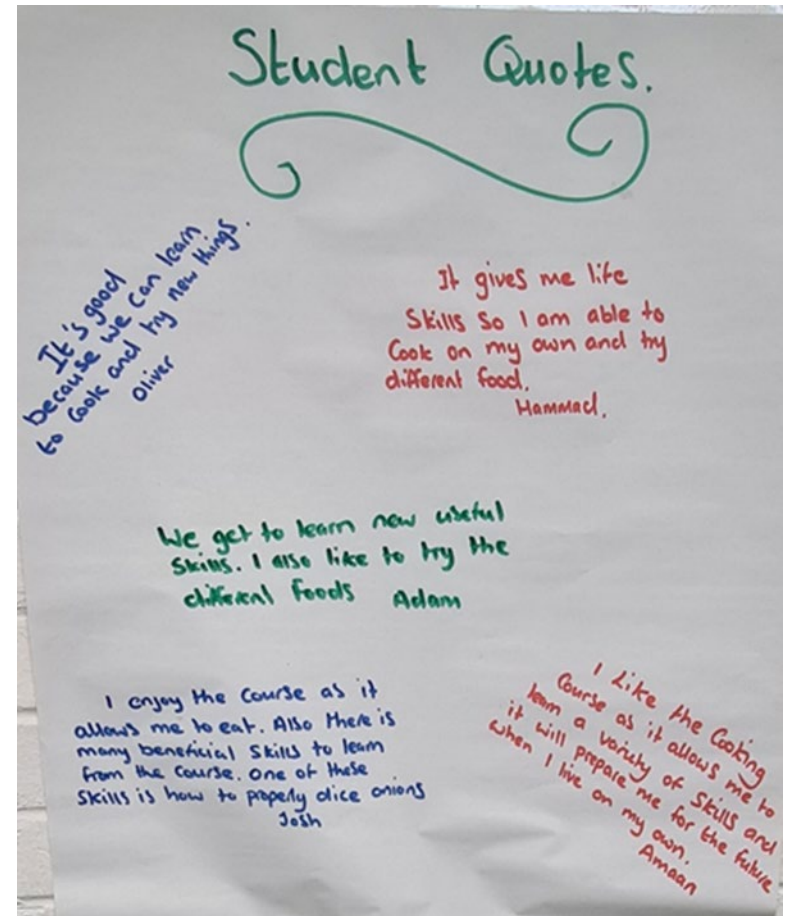 Student Quotes.
It's good
because we can learn
to cook and try new things.
Oliver
It gives me life
Skills So I am able to
Cook on my own and try
different food.
Hammad.
We get to learn new useful
Skills. I also like to try the
different foods Adam
I enjoy the Course as it
allows me to eat. Also there is
many beneficial Skills to learn
from the Course. One of these
Skills is how to properly dice onions
Josh
I Like the Cooking
Course as it allows me to
learn a variety of Skills and
it will prepare me for the future
when I live on my own.
Amaan